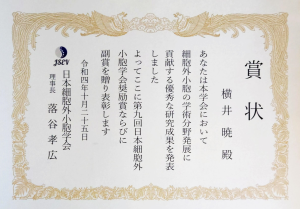 賞状
横井 暁 殿
あなたは本学会において
細胞外小胞の学術分野発展に
貢献する優秀な研究成果を発表
しました
よってここに第九回日本細胞外
小胞学会奨励賞ならびに
副賞を贈り表彰します
令和四年十月二十五日
JSEV
日本細胞外小胞学会
理事長 落谷孝広